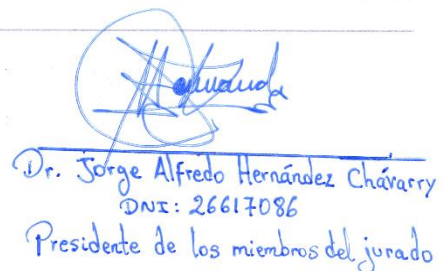 Hernández
Dr. Jorge Alfredo Hernández Chávarry
DNI: 26617086
Presidente de los miembros del jurado